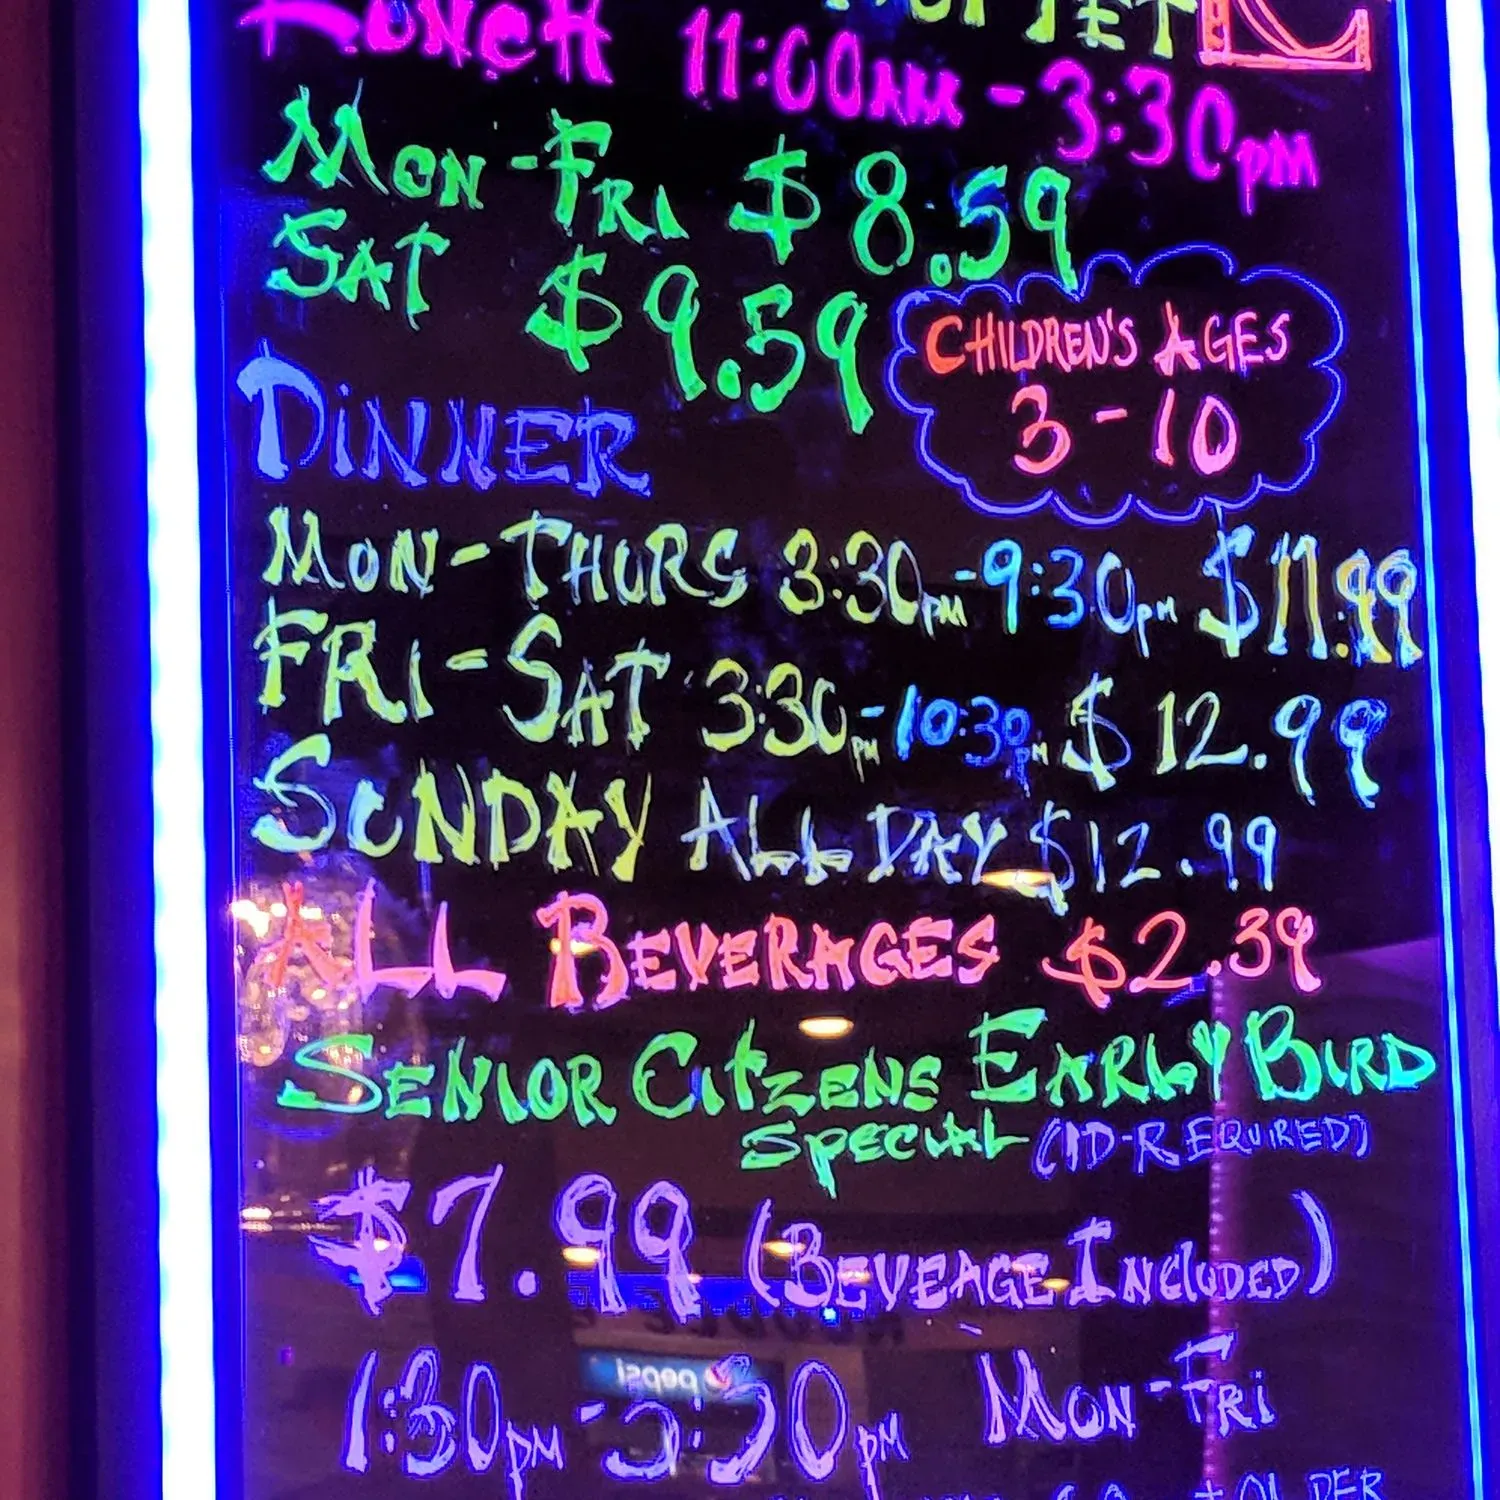 LUNCH 11:00AM - 3:30PM
MON-FRI $8.59
SAT $9.59
CHILDREN'S AGES
3-10
DINNER
MON-THURS 3:30PM-9:30PM $11.99
FRI-SAT 3:30PM-10:30PM $12.99
SUNDAY ALL DAY $12.99
ALL BEVERAGES $2.39
SENIOR CITZENS EARLY BIRD
SPECIAL (ID-REQUIRED)
$7.99 (BEVEAGE INCLUDED)
pepsi
1:30PM-3:30PM MON-FRI
+ OLDER